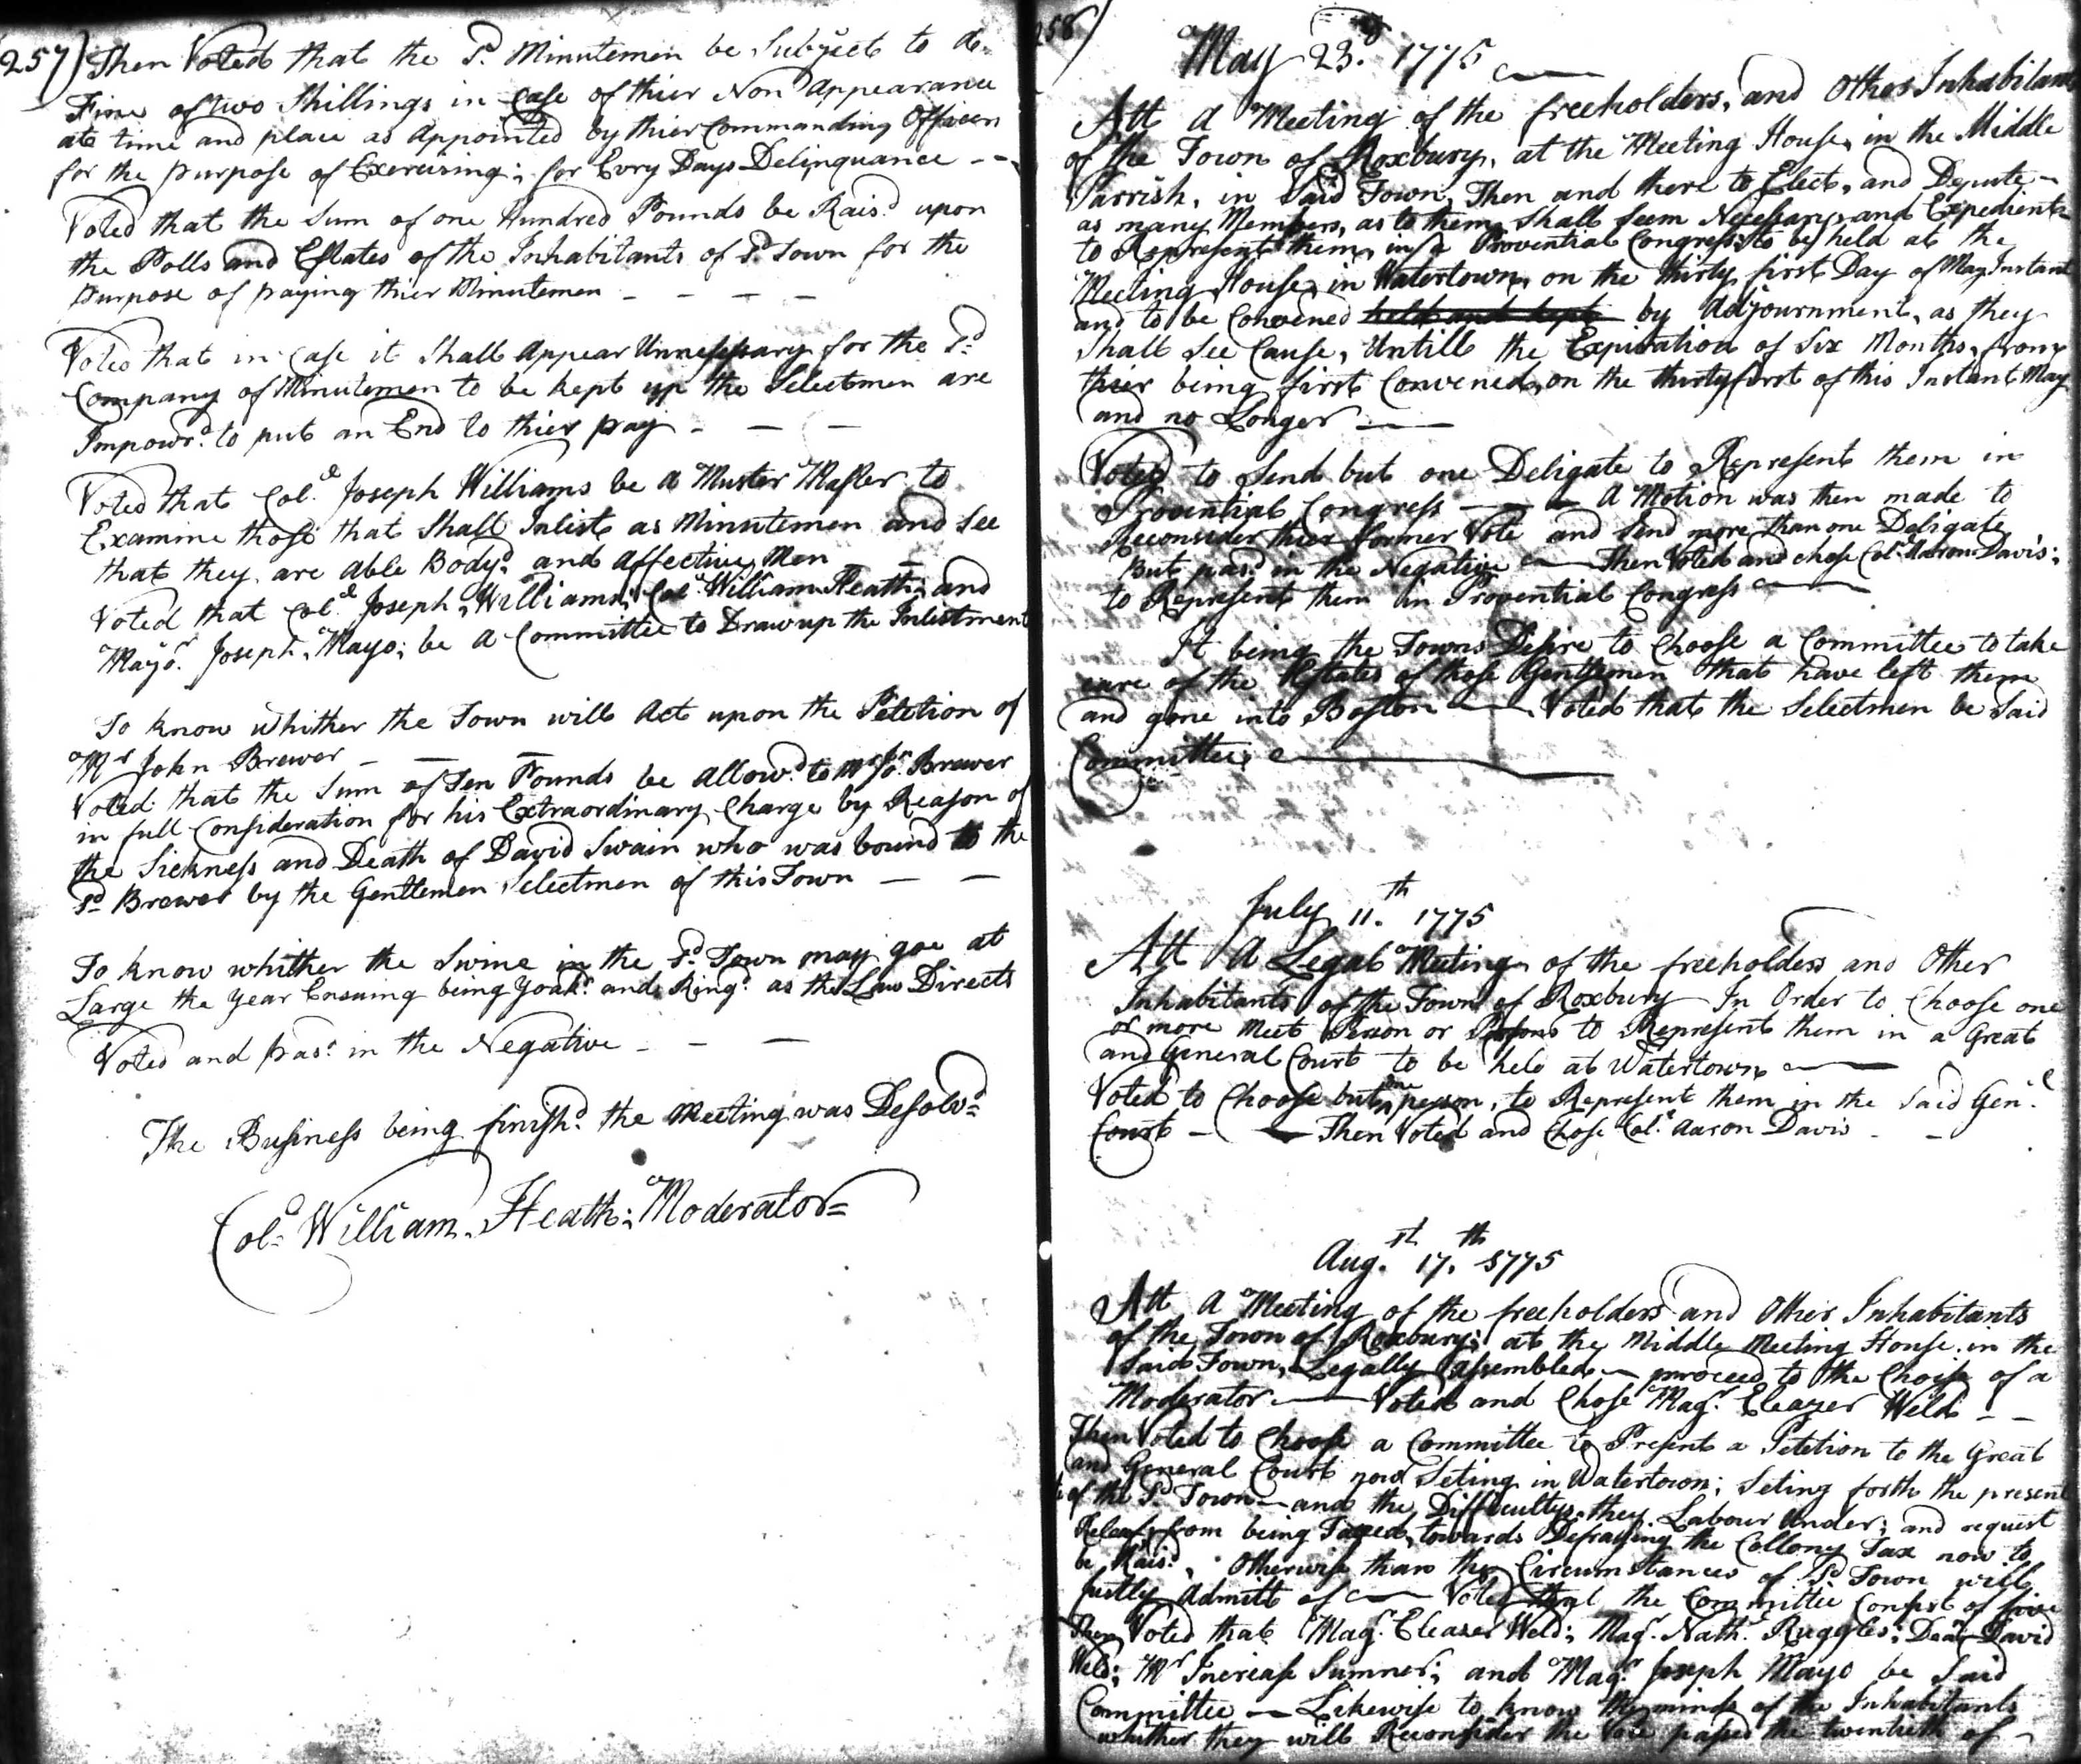 257) Then Voted that the Sd. Minutemen be Subject to a
Fine of two Shillings in Case of thier Non Appearance
att time and place as Appointed by thier Commanding Officers
for the purpose of Exercising; for Evry Days Delinquance - -
Voted that the Sum of one Hundred Pounds be Raisd. upon
the Polls and Estates of the Inhabitants of Sd. Town for the
purpose of paying thier Minutemen - - - -
Voted that in Case it Shall Appear Unnessessary for the Sd.
Company of Minutemen to be kept up the Selectmen are
Impowrd. to put an End to thier pay - - -
Voted that Coll. Joseph Williams be a Muster Master to
Examine those that Shall Inlist as Minutemen and See
that they are able Bodyd. and Affective Men -
Voted that Coll. Joseph Williams; Col. William Heath; and
Mayor. Joseph Mayo; be a Committee to Draw up the Inlistment
To know whither the Town will Act upon the Petetion of
Mr John Brewer - - -
Voted that the Sum of Ten Pounds be Allowd. to Mr Jo. Brewer
in full Consideration for his Extraordinary Charge by Reason of
the Sickness and Death of David Swain who was bound to the
Sd Brewer by the Gentlemen Selectmen of this Town - -
To know whither the Swine in the Sd. Town may goe at
Large the year Ensuing being Yoakd. and Ringd. as the Law Directs
Voted and pasd. in the Negative - - -
The Business being finishd. the Meeting was Desolvd.
Col. William Heath; Moderator
258)
May 23d. 1775
Att a Meeting of the freeholders, and Other Inhabitants
of the Town of Roxbury, at the Meeting House, in the Middle
Parrish, in Said Town, Then and there to Elect, and Depute
as many Members, as to them Shall Seem Necessary and Expedient
to Represent them, in a Provential Congress to be held at the
Meeting House, in Watertown, on the thirty first Day of May Instant
and to be Convened held and kept by Adjournment, as they
Shall See Cause, Untill the Expiration of Six Months, from
thier being first Convened, on the thirty first of this Instant May
and no Longer
Voted to Send but one Deligate to Represent them in
Provential Congress — A Motion was then made to
Reconsider thier former Vote and Send more than one Deligate
But pasd. in the Negative — Then Voted and chose Col. Aaron Davis;
to Represent them in Provential Congress
It being the Towns Desire to Choose a Committee to take
care of the Estates of those Gentlemen that have left them
and gone into Boston — Voted that the Selectmen be Said
Committee
July 11.th 1775
Att A Legal Meeting of the freeholders and Other
Inhabitants of the Town of Roxbury In Order to Choose one
or more Meet Person or Persons to Represent them in a Great
and General Court to be held at Watertown
Voted to Choose but one person, to Represent them in the Said Genl.
Court - — Then Voted and Chose Col. Aaron Davis - -
Augst. 17.th 1775
Att A Meeting of the freeholders and Other Inhabitants
of the Town of Roxbury; at the Middle Meeting House in the
Said Town, Legally assembled — proceed to the Choise of a
Moderator — Voted and Chose Magr. Eleazer Weld - -
Then Voted to Choose a Committee to Present a Petetion to the Great
and General Court now Seting in Watertown; Seting forth the present
of the Sd. Town — and the Difficultys they Labour Under; and request
Releaf from being Taxed, towards Defraying the Collony Tax now to
be Raisd., Otherwise than the Circumstances of Sd Town will
justly Admitt of — Voted that the Committee Consist of five
Then Voted that Magr. Eleazer Weld; Magr. Nathl. Ruggles; Dean David
Weld; Mr Increase Sumner; and Magr. Joseph Mayo be Said
Committee — Likewise to know the minds of the Inhabitants
whither they will Reconsider the Vote passed the twentieth of